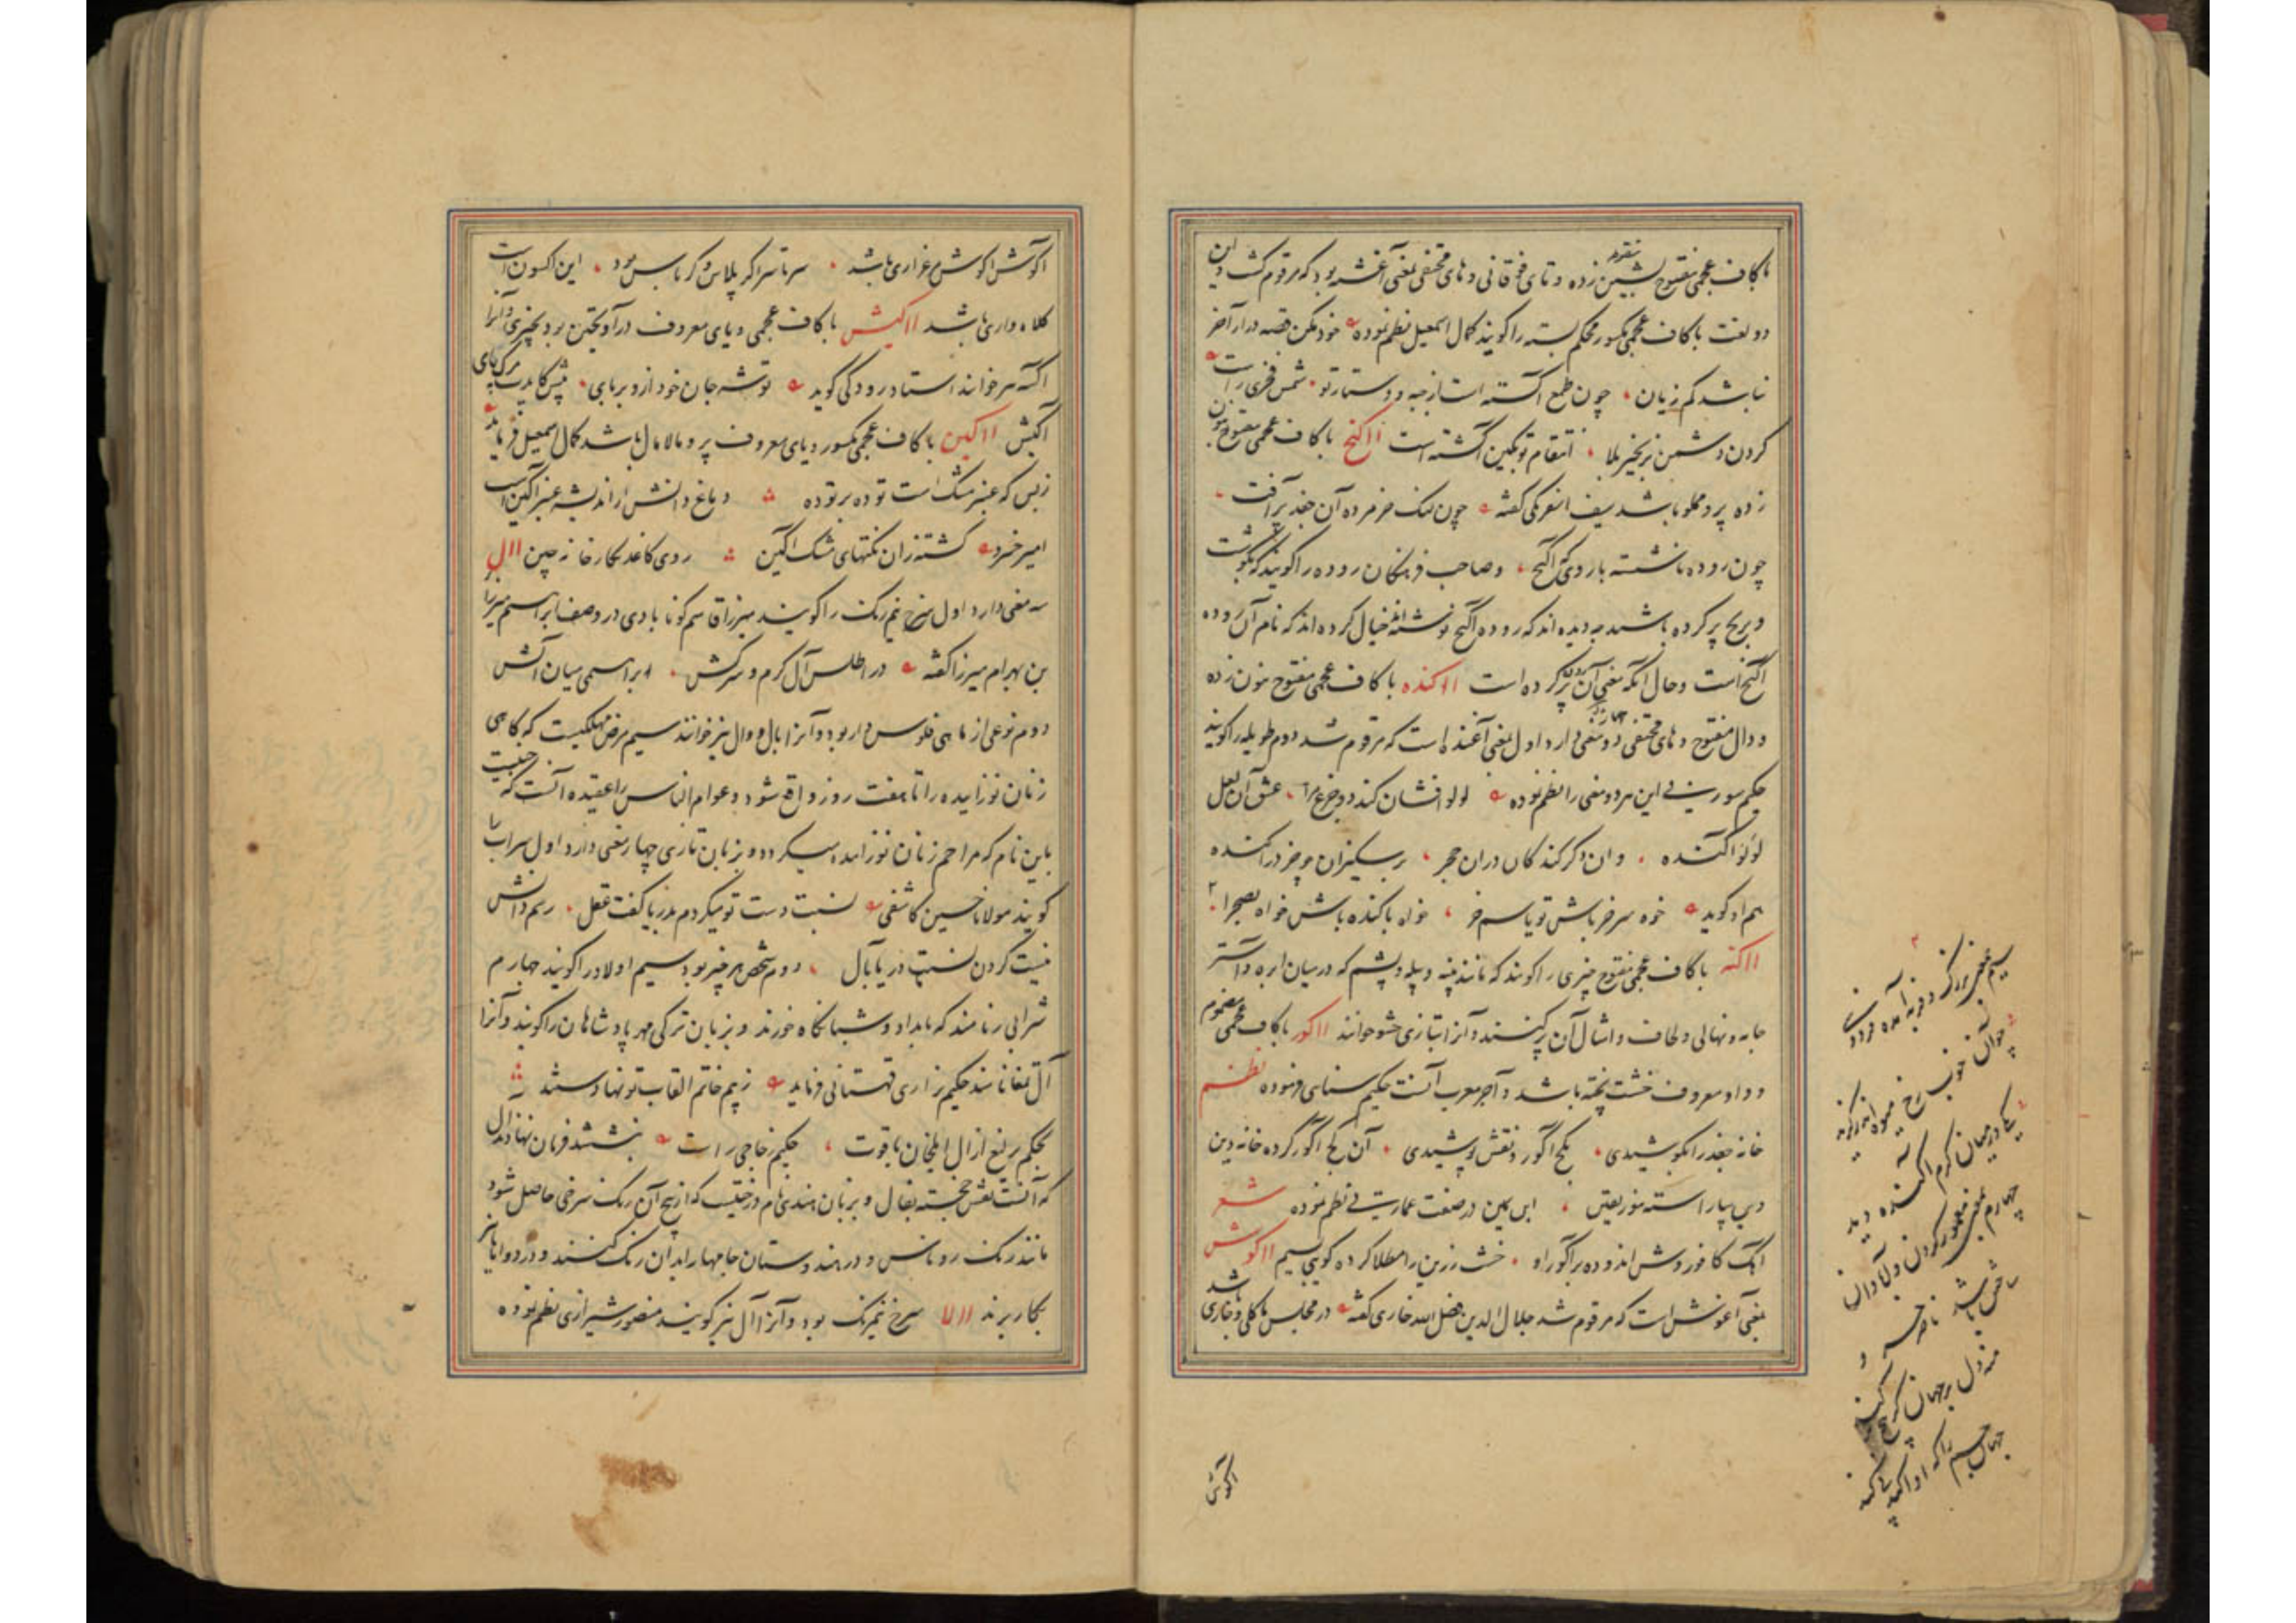 با کاف عجمی مفتوح بشین زده و تای فوقانی و های مختفی بمعنی آغشته بود که مرقوم گشت و این
دو لغت با کاف عجمی مکسور محکم بسته را گویند کمال اسمعیل نظم نموده خود مکن قصه دراز آخر
نباشد کم زیان چون طمع آگسته است از جبه و دستار تو شمس فخری راست
کردن دشمن بزنجیر بلا انتقام تو بکین آگشته است ااکنج با کاف عجمی مفتوح بنون
زده پر و مملو باشد سیف اسفرنگی گفته چون سنگ
چون روده ناشسته بار وی آگنج و صاحب فرهنگان روده را گویند که بگوشت
و برنج پر کرده باشند چه دیده اند که روده آگنج نوشته اند خیال کرده اند که نام آن روده
آگنج است و حال آنکه معنی آن پر کرده است ااکنده با کاف عجمی مفتوح بنون زده
و دال مفتوح و های مختفی دو معنی دارد اول بمعنی آغنده است که مرقوم شد دوم طویله را گویند
حکیم سوزنی این هر دو معنی را نظم نموده لولو افشان کند دو جزع مرا عشق آن لعل
لولو آکنده وان دگر کندگان دران حجر بر سکیزان چو خر در آکنده
هم او گوید خوه سر خر باش تو یا سم خر خواه باکنده باش خواه بصحرا
ااکنه با کاف عجمی مفتوح چیزی را گویند که مانند پنبه و پیله و پشم که در میان ابره و آستر
جامه و نهالی و لحاف و امثال آن پر کنند و آنرا بتازی حشو خوانند ااکور با کاف عجمی مضموم
و واو معروف خشت پخته باشد و آجر معرب آنست حکیم سنائی فرموده نظم
خانه جغد را بکوشیدی بگج آگور و نقش پوشیدی آن گج آگور کرده خانه دین
وین بیاراسته بنور یقین ابن یمین در صفت عمارت نظم نموده شعر
آهک کافور وش اندوده بر آگور او خشت زرین را مطلا کرده گویی بسیم ااکوش
بمعنی آغوش است که مرقوم شد جلال الدین فضل الله خاری گفته در مجلس ما گل و خاری باشد
آکوش
سیم بمعنی بزرگ و فربه آمده فردوسی
چو آن خوب رخ میوه
یکی در میان کرم آکنده دید
چهارم بمعنی معمور کردن و آبادان
ساختن باشد ناصر خسرو
منه دل بر جهان کز بیخ برکند
جهان جم را که او آکند
آکوش آکوش مرغزاری باشد سرتاسر اگر پلاس و کرباس بود این اکسون است
کلاه واری باشد ااکیش با کاف عجمی و یای معروف در آویختن بود بچیزی و آنرا
آگشه هم خوانند استاد رودکی گوید توشه جان خود ازو بربای پیش کایدت مرگ پای
آگیش ااکین با کاف عجمی مکسور و یای معروف پر و مالامال باشد کمال اسمعیل فرماید
ز بس که عنبر مشک است توده بر توده دماغ دانش از اندیشه عنبر آگین است
امیر خسرو گشته زان نکتهای مشک آگین روی کاغذ نگارخانه چین اال
سه معنی دارد اول سرخ نیم رنگ را گویند میرزا قاسم گونابادی در وصف ابراهیم میرزا
بن بهرام میرزا گفته در اطلس آل گرم و سرکش ابراهیمی میان آتش
دوم نوعی از ماهی فلوس دار بود و آنرا بال و وال نیز خوانند سیم مرض مهلکیست که گاهی
زنان نوزاییده را تا هفت روز واقع شود و عوام الناس را عقیده آنست که جنیست
باین نام که مزاحم زنان نوزاییده میگردد و بزبان تازی چهار معنی دارد اول سراب را
گویند مولانا حسین کاشفی نسبت دست تو میکردم بدریا گفت عقل رسم دانش
نیست کردن نسبت دریا بآل دوم شخص هر چیز بود سیم اولاد را گویند چهارم
شرابی را نامند که بامداد و شبانگاه خورند و بزبان ترکی مهر پادشاهان را گویند و آنرا
آل تمغا نامند حکیم نزاری قهستانی فرماید زیم خاتم القاب تو نهاد ستند
بحکم یرلیغ از ال ایلخان یاقوت حکیم خاجی راست بنشتند فرمان نهادند آل
که آنست نقش خجسته بفال و بزبان هندی نام درختیست که از بیخ آن رنگ سرخی حاصل شود
مانند رنگ روناس و در هندوستان جامها را بدان رنگ کنند و در دواها نیز
بکار برند االا سرخ نیمرنگ بود و آنرا آل نیز گویند منصور شیرازی نظم نموده